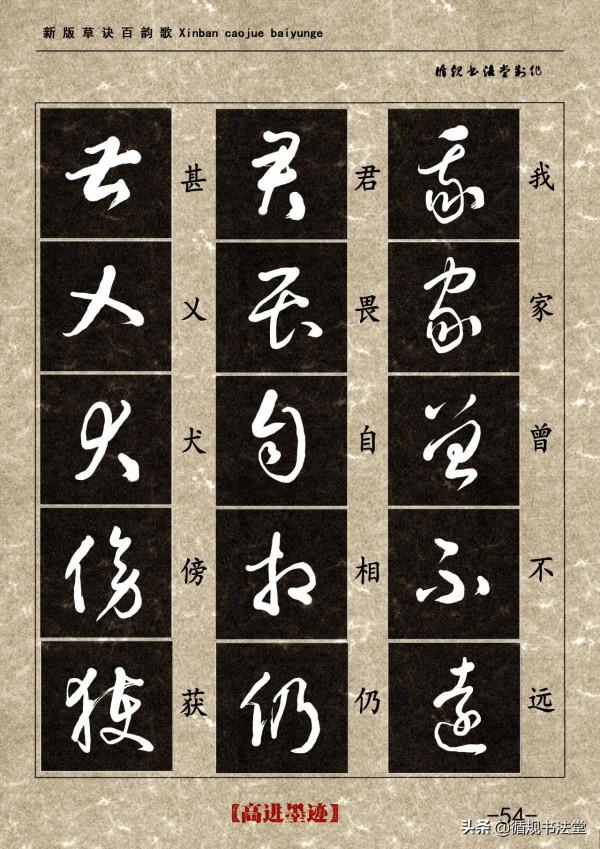 新版草诀百韵歌 Xinban caojue baiyunge
循规书法堂制作
我家曾不远
我家曾不遠
君畏自相仍
君畏自相仍
甚乂犬傍获
甚乂犬傍獲
【高进墨迹】
-54-
头条 @循规书法堂